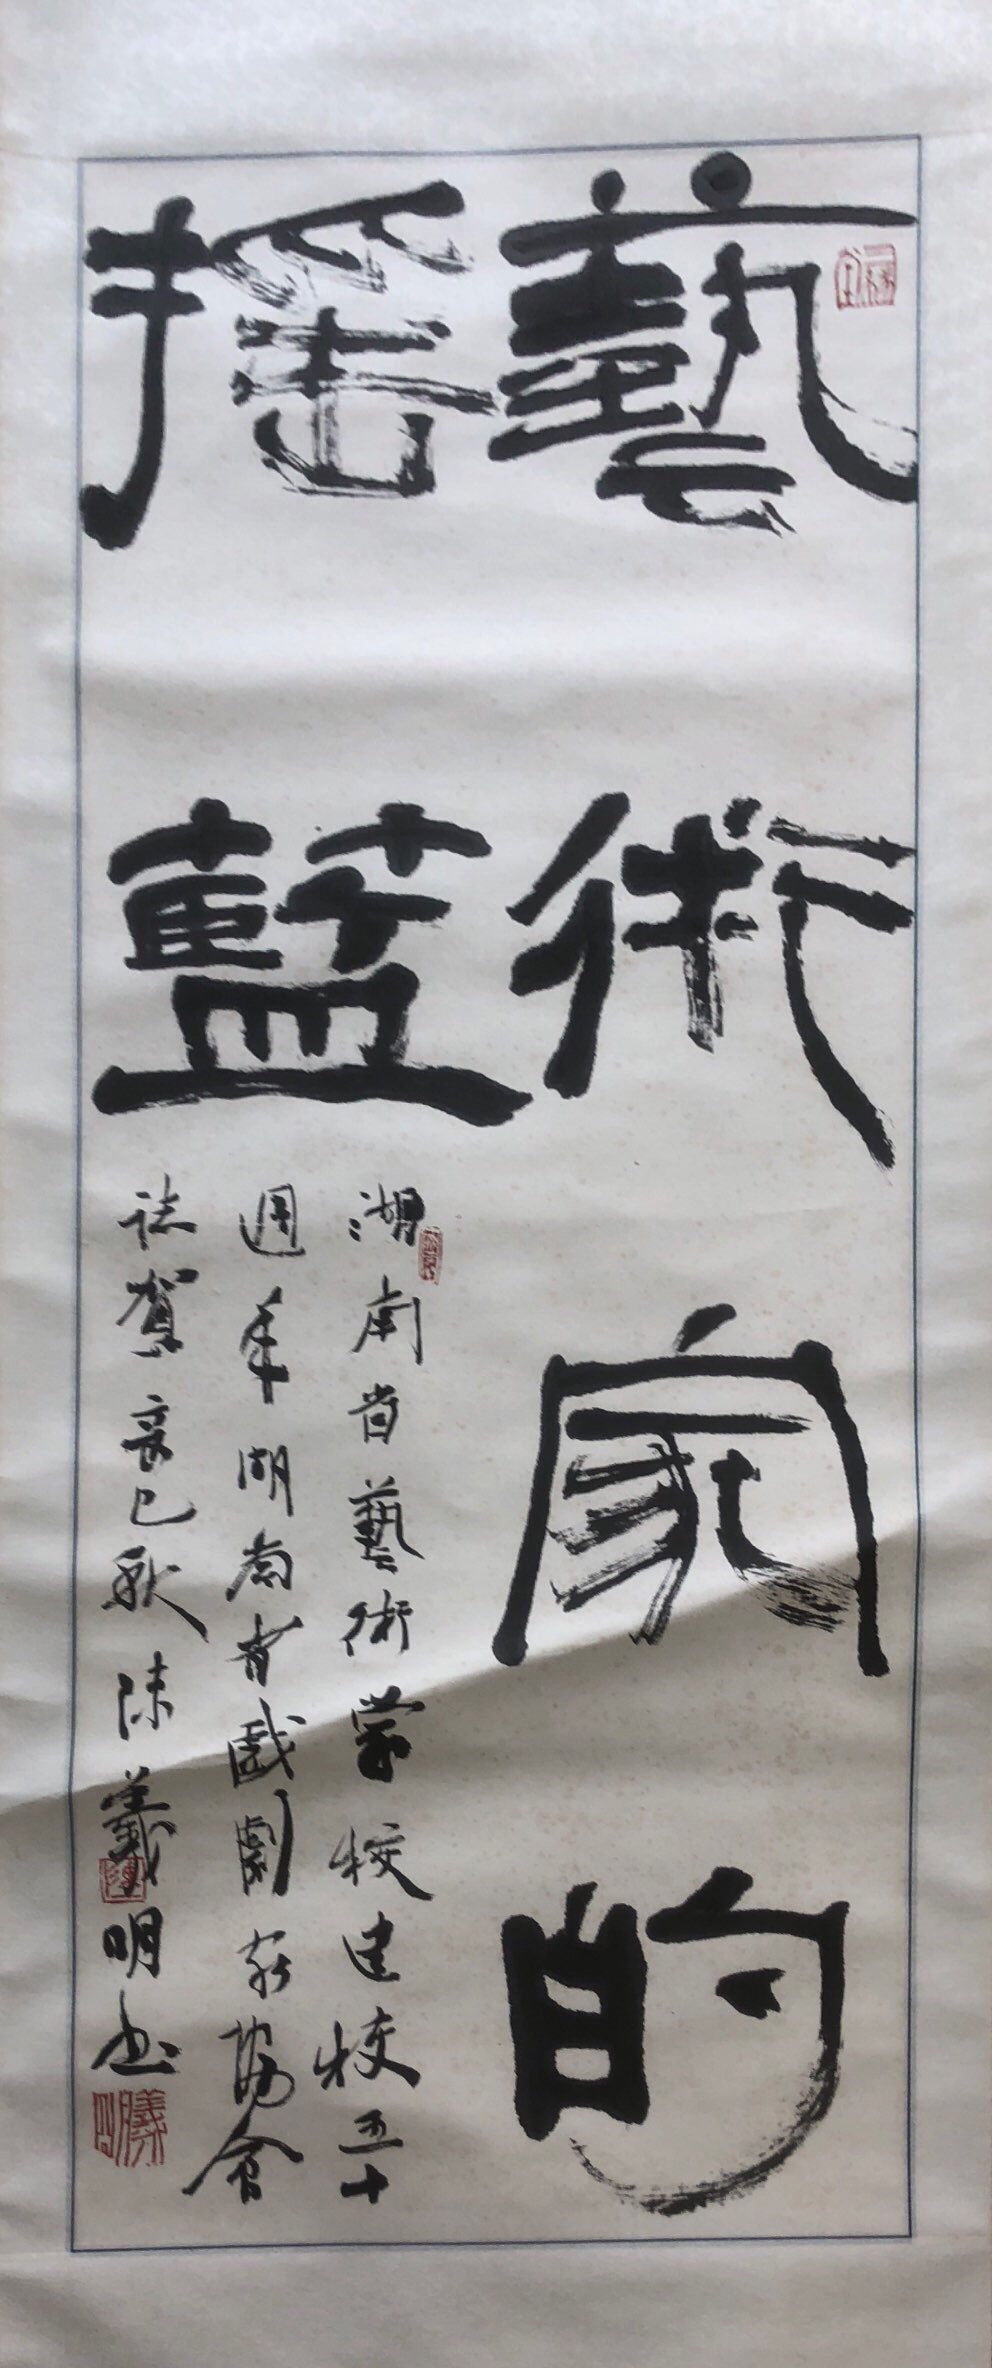 藝術家的
搖藍
湖南省藝術學校建校五十
週年湖南省戲劇家協會
誌賀辛巳秋陳羲明书